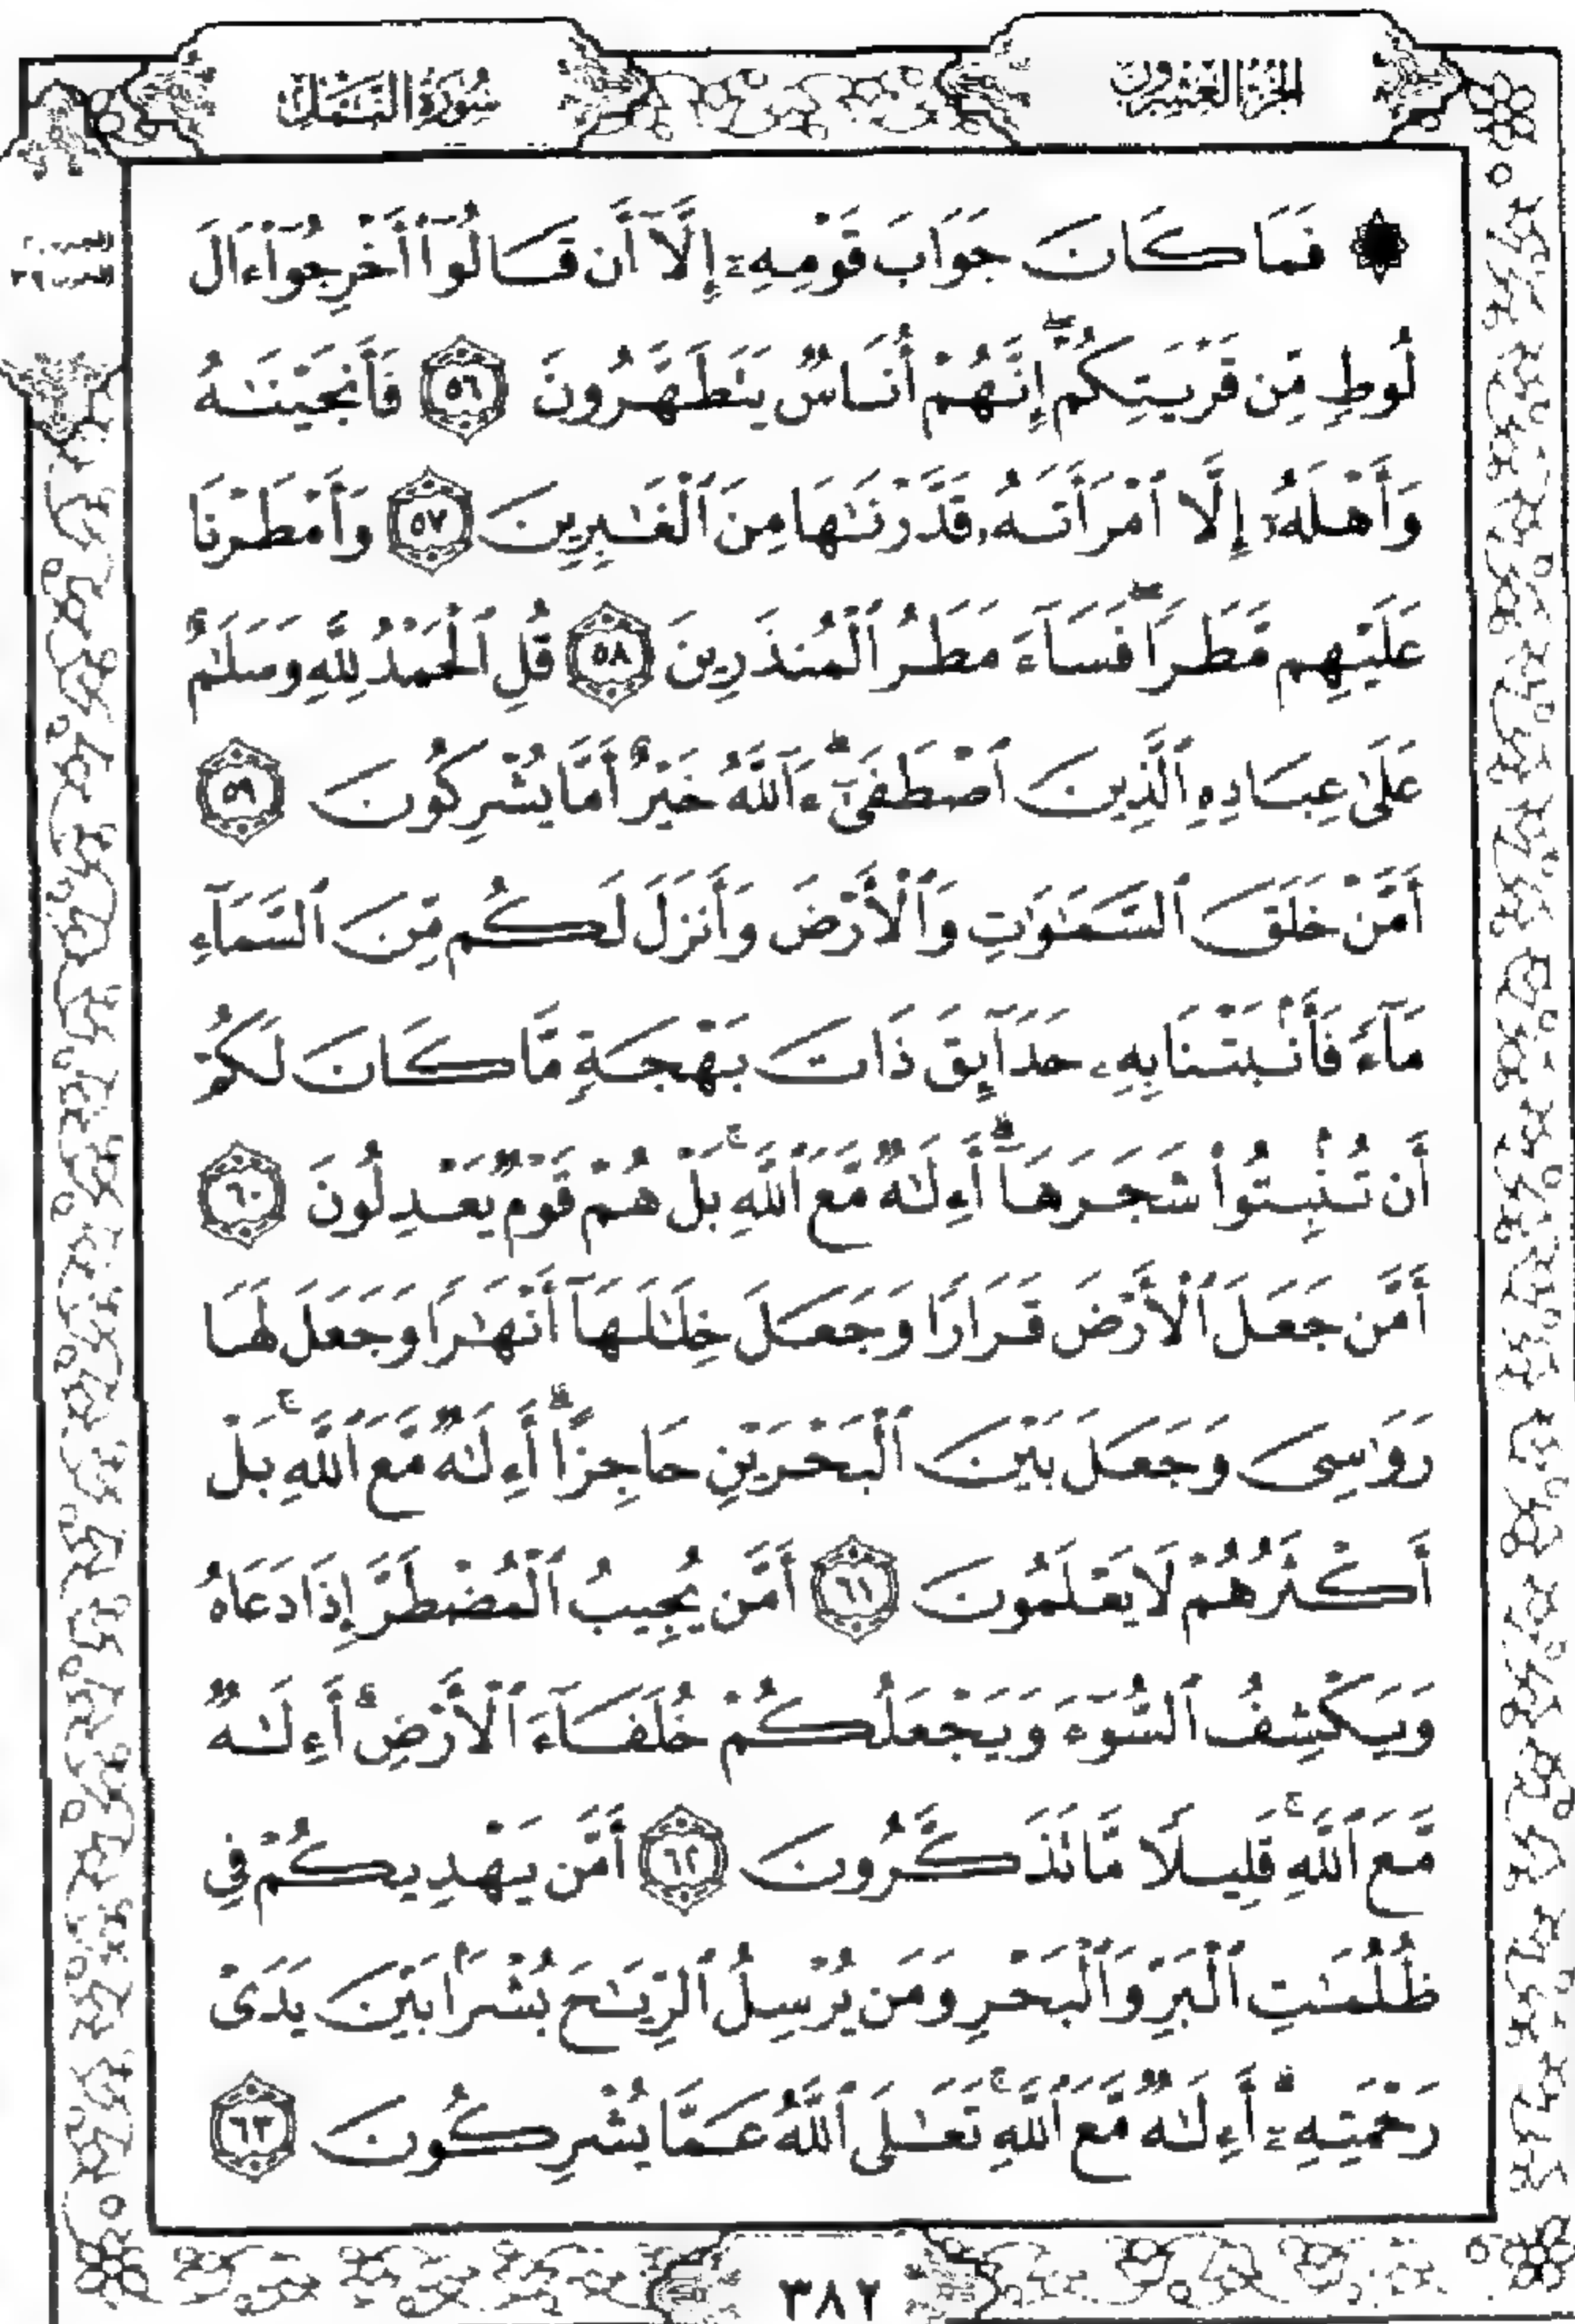 الجزء العشرون
سورة النمل
۞ فَمَا كَانَ جَوَابَ قَوْمِهِۦٓ إِلَّآ أَن قَالُوٓا۟ أَخْرِجُوٓا۟ ءَالَ
لُوطٍ مِّن قَرْيَتِكُمْ ۖ إِنَّهُمْ أُنَاسٌ يَتَطَهَّرُونَ ٥٦ فَأَنجَيْنَٰهُ
وَأَهْلَهُۥٓ إِلَّا ٱمْرَأَتَهُۥ قَدَّرْنَٰهَا مِنَ ٱلْغَٰبِرِينَ ٥٧ وَأَمْطَرْنَا
عَلَيْهِم مَّطَرًا ۖ فَسَآءَ مَطَرُ ٱلْمُنذَرِينَ ٥٨ قُلِ ٱلْحَمْدُ لِلَّهِ وَسَلَٰمٌ
عَلَىٰ عِبَادِهِ ٱلَّذِينَ ٱصْطَفَىٰٓ ۗ ءَآللَّهُ خَيْرٌ أَمَّا يُشْرِكُونَ ٥٩
أَمَّنْ خَلَقَ ٱلسَّمَٰوَٰتِ وَٱلْأَرْضَ وَأَنزَلَ لَكُم مِّنَ ٱلسَّمَآءِ
مَآءً فَأَنۢبَتْنَا بِهِۦ حَدَآئِقَ ذَاتَ بَهْجَةٍ مَّا كَانَ لَكُمْ
أَن تُنۢبِتُوا۟ شَجَرَهَآ ۗ أَءِلَٰهٌ مَّعَ ٱللَّهِ ۚ بَلْ هُمْ قَوْمٌ يَعْدِلُونَ ٦٠
أَمَّن جَعَلَ ٱلْأَرْضَ قَرَارًا وَجَعَلَ خِلَٰلَهَآ أَنْهَٰرًا وَجَعَلَ لَهَا
رَوَٰسِىَ وَجَعَلَ بَيْنَ ٱلْبَحْرَيْنِ حَاجِزًا ۗ أَءِلَٰهٌ مَّعَ ٱللَّهِ ۚ بَلْ
أَكْثَرُهُمْ لَا يَعْلَمُونَ ٦١ أَمَّن يُجِيبُ ٱلْمُضْطَرَّ إِذَا دَعَاهُ
وَيَكْشِفُ ٱلسُّوٓءَ وَيَجْعَلُكُمْ خُلَفَآءَ ٱلْأَرْضِ ۗ أَءِلَٰهٌ
مَّعَ ٱللَّهِ ۚ قَلِيلًا مَّا تَذَكَّرُونَ ٦٢ أَمَّن يَهْدِيكُمْ فِى
ظُلُمَٰتِ ٱلْبَرِّ وَٱلْبَحْرِ وَمَن يُرْسِلُ ٱلرِّيَٰحَ بُشْرًۢا بَيْنَ يَدَىْ
رَحْمَتِهِۦٓ ۗ أَءِلَٰهٌ مَّعَ ٱللَّهِ ۚ تَعَٰلَى ٱللَّهُ عَمَّا يُشْرِكُونَ ٦٣
٣٨٢